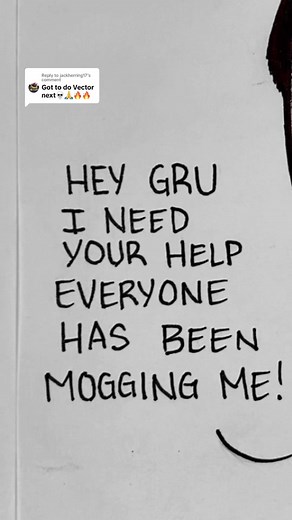 Reply to jackherring17's
comment
Got to do Vector
next 💀🙏🔥🔥
HEY GRU
I NEED
YOUR HELP
EVERYONE
HAS BEEN
MOGGING ME!